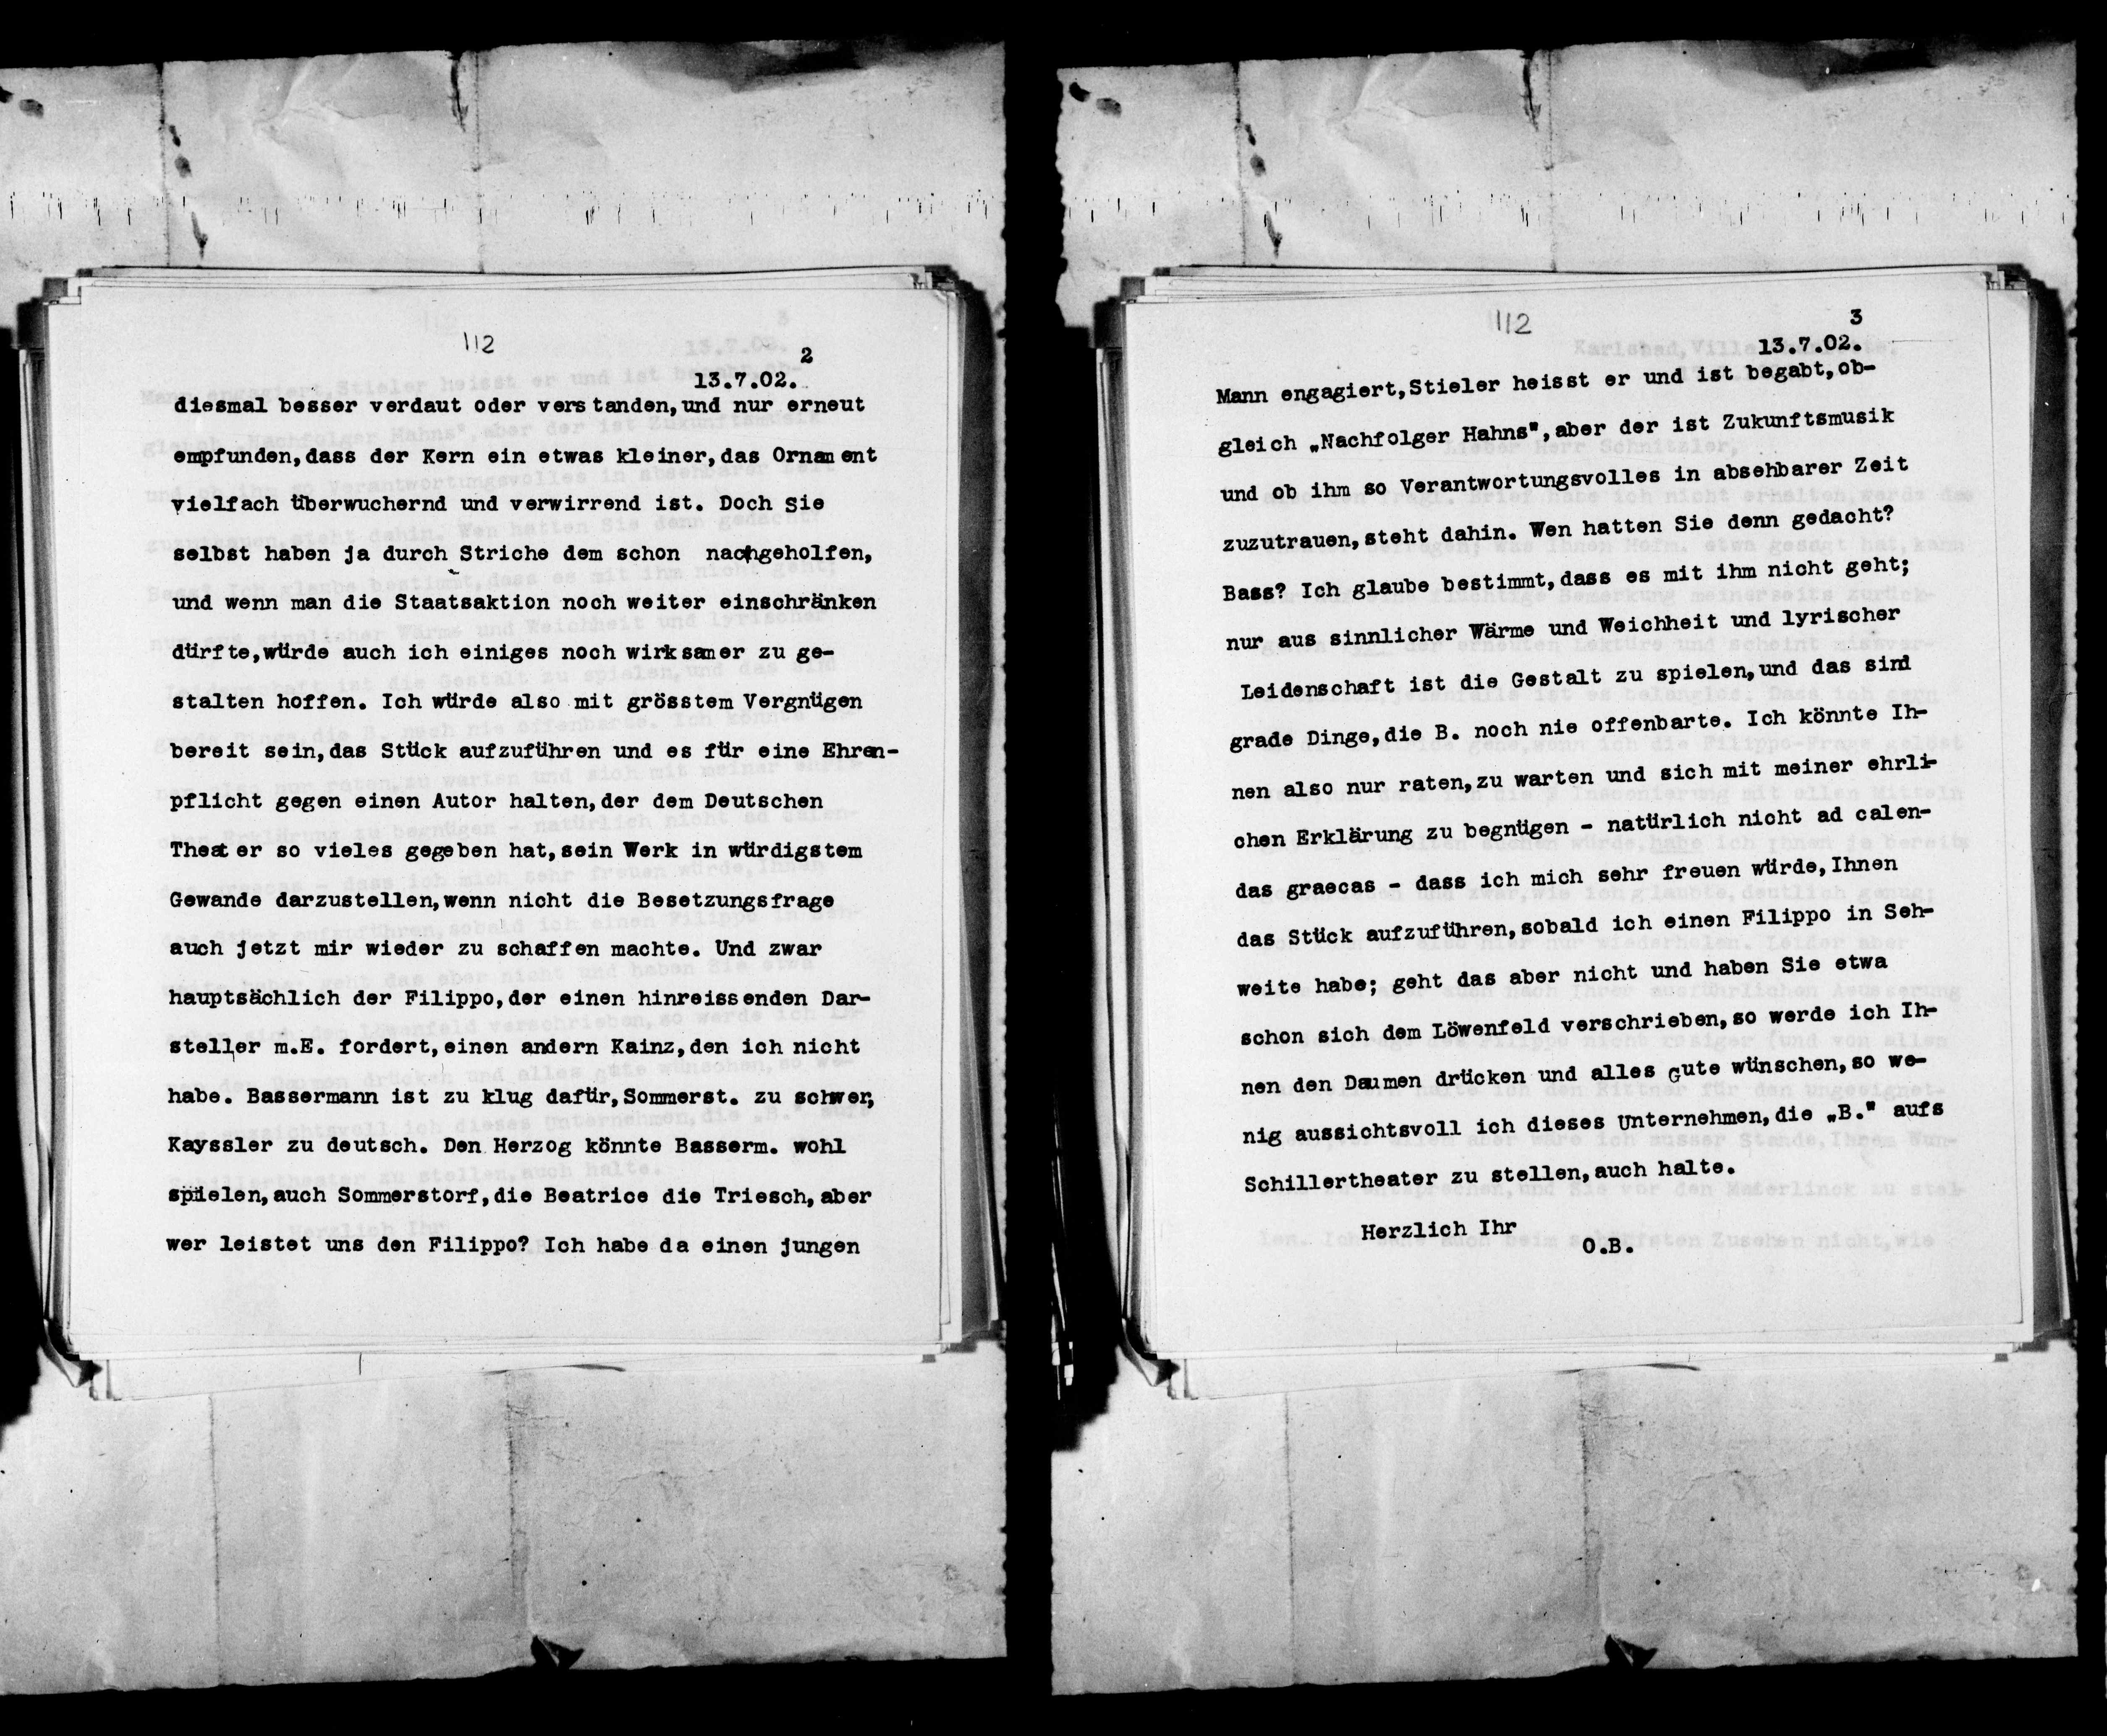 112
2
13.7.02.
diesmal besser verdaut oder verstanden,und nur erneut
empfunden,dass der Kern ein etwas kleiner,das Ornament
vielfach überwuchernd und verwirrend ist. Doch Sie
selbst haben ja durch Striche dem schon nachgeholfen,
und wenn man die Staatsaktion noch weiter einschränken
dürfte,würde auch ich einiges noch wirksamer zu ge-
stalten hoffen. Ich würde also mit grösstem Vergnügen
bereit sein,das Stück aufzuführen und es für eine Ehren-
pflicht gegen einen Autor halten,der dem Deutschen
Theater so vieles gegeben hat,sein Werk in würdigstem
Gewande darzustellen,wenn nicht die Besetzungsfrage
auch jetzt mir wieder zu schaffen machte. Und zwar
hauptsächlich der Filippo,der einen hinreissenden Dar-
steller m.E. fordert,einen andern Kainz,den ich nicht
habe. Bassermann ist zu klug dafür,Sommerst. zu schwer,
Kayssler zu deutsch. Den Herzog könnte Basserm. wohl
spielen,auch Sommerstorf,die Beatrice die Triesch,aber
wer leistet uns den Filippo? Ich habe da einen jungen
112
3
13.7.02.
Mann engagiert,Stieler heisst er und ist begabt,ob-
gleich „Nachfolger Hahns",aber der ist Zukunftsmusik
und ob ihm so Verantwortungsvolles in absehbarer Zeit
zuzutrauen,steht dahin. Wen hatten Sie denn gedacht?
Bass? Ich glaube bestimmt,dass es mit ihm nicht geht;
nur aus sinnlicher Wärme und Weichheit und lyrischer
Leidenschaft ist die Gestalt zu spielen,und das sind
grade Dinge,die B. noch nie offenbarte. Ich könnte Ih-
nen also nur raten,zu warten und sich mit meiner ehrli-
chen Erklärung zu begnügen - natürlich nicht ad calen-
das graecas - dass ich mich sehr freuen würde,Ihnen
das Stück aufzuführen,sobald ich einen Filippo in Seh-
weite habe; geht das aber nicht und haben Sie etwa
schon sich dem Löwenfeld verschrieben,so werde ich Ih-
nen den Daumen drücken und alles Gute wünschen,so we-
nig aussichtsvoll ich dieses Unternehmen,die „B." aufs
Schillertheater zu stellen,auch halte.
Herzlich Ihr
O.B.